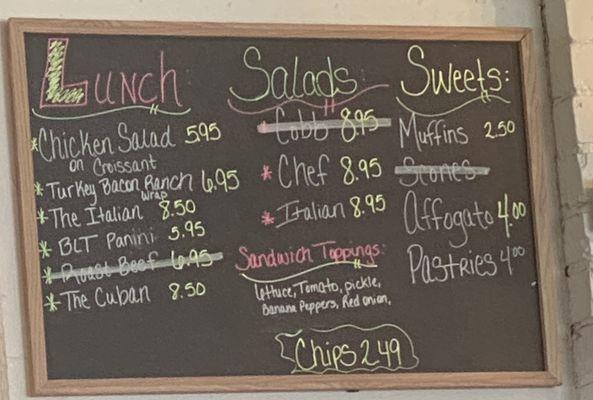 Lunch
*Chicken Salad 5.95
on Croissant
*Turkey Bacon Ranch 6.95
Wrap
*The Italian 8.50
*BLT Panini 5.95
*Roast Beef 6.95
*The Cuban 8.50
Salads:
*Cobb 8.95
*Chef 8.95
*Italian 8.95
Sandwich Toppings:
lettuce, Tomato, pickle,
Banana Peppers, Red onion,
Chips 2.49
Sweets:
Muffins 2.50
Scones
Affogato 4.00
Pastries 4.00